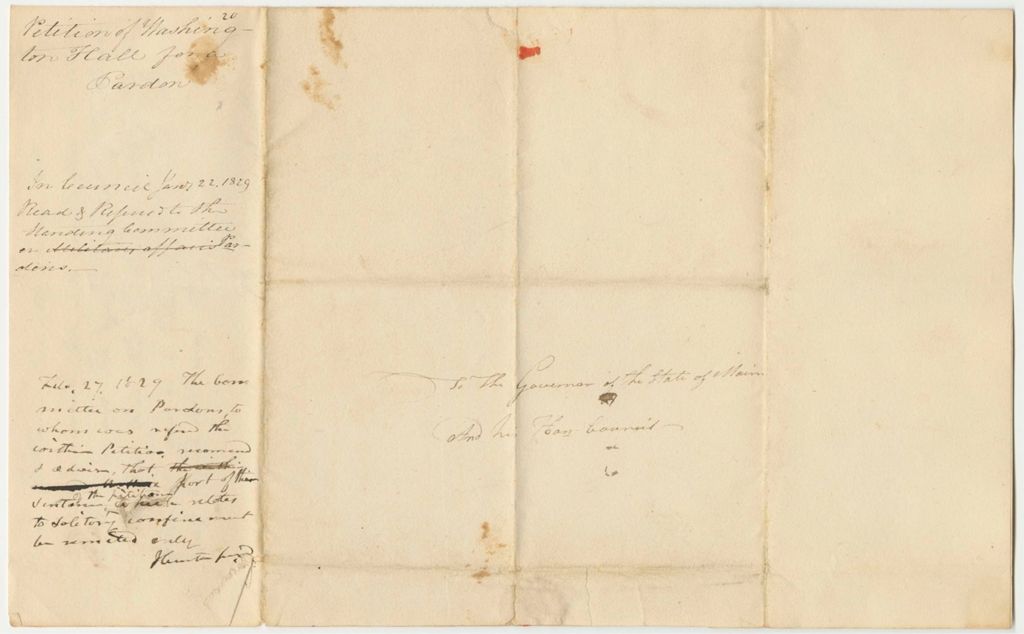 20
Petition of Washing-
ton Hall for a
Pardon
In Council Jany 22, 1829
Read & Referred to the
Standing Committee
on Military affairs Par-
dons.
Feb. 27, 1829 The Com
mittee on Pardons, to
whom was referd the
within Petition, recommend
& advise, that the within
part of the
of the petitioner
sentence, which relates
to solitary confinement
be remitted only
To The Governor of the State of Main
And his Hon Council